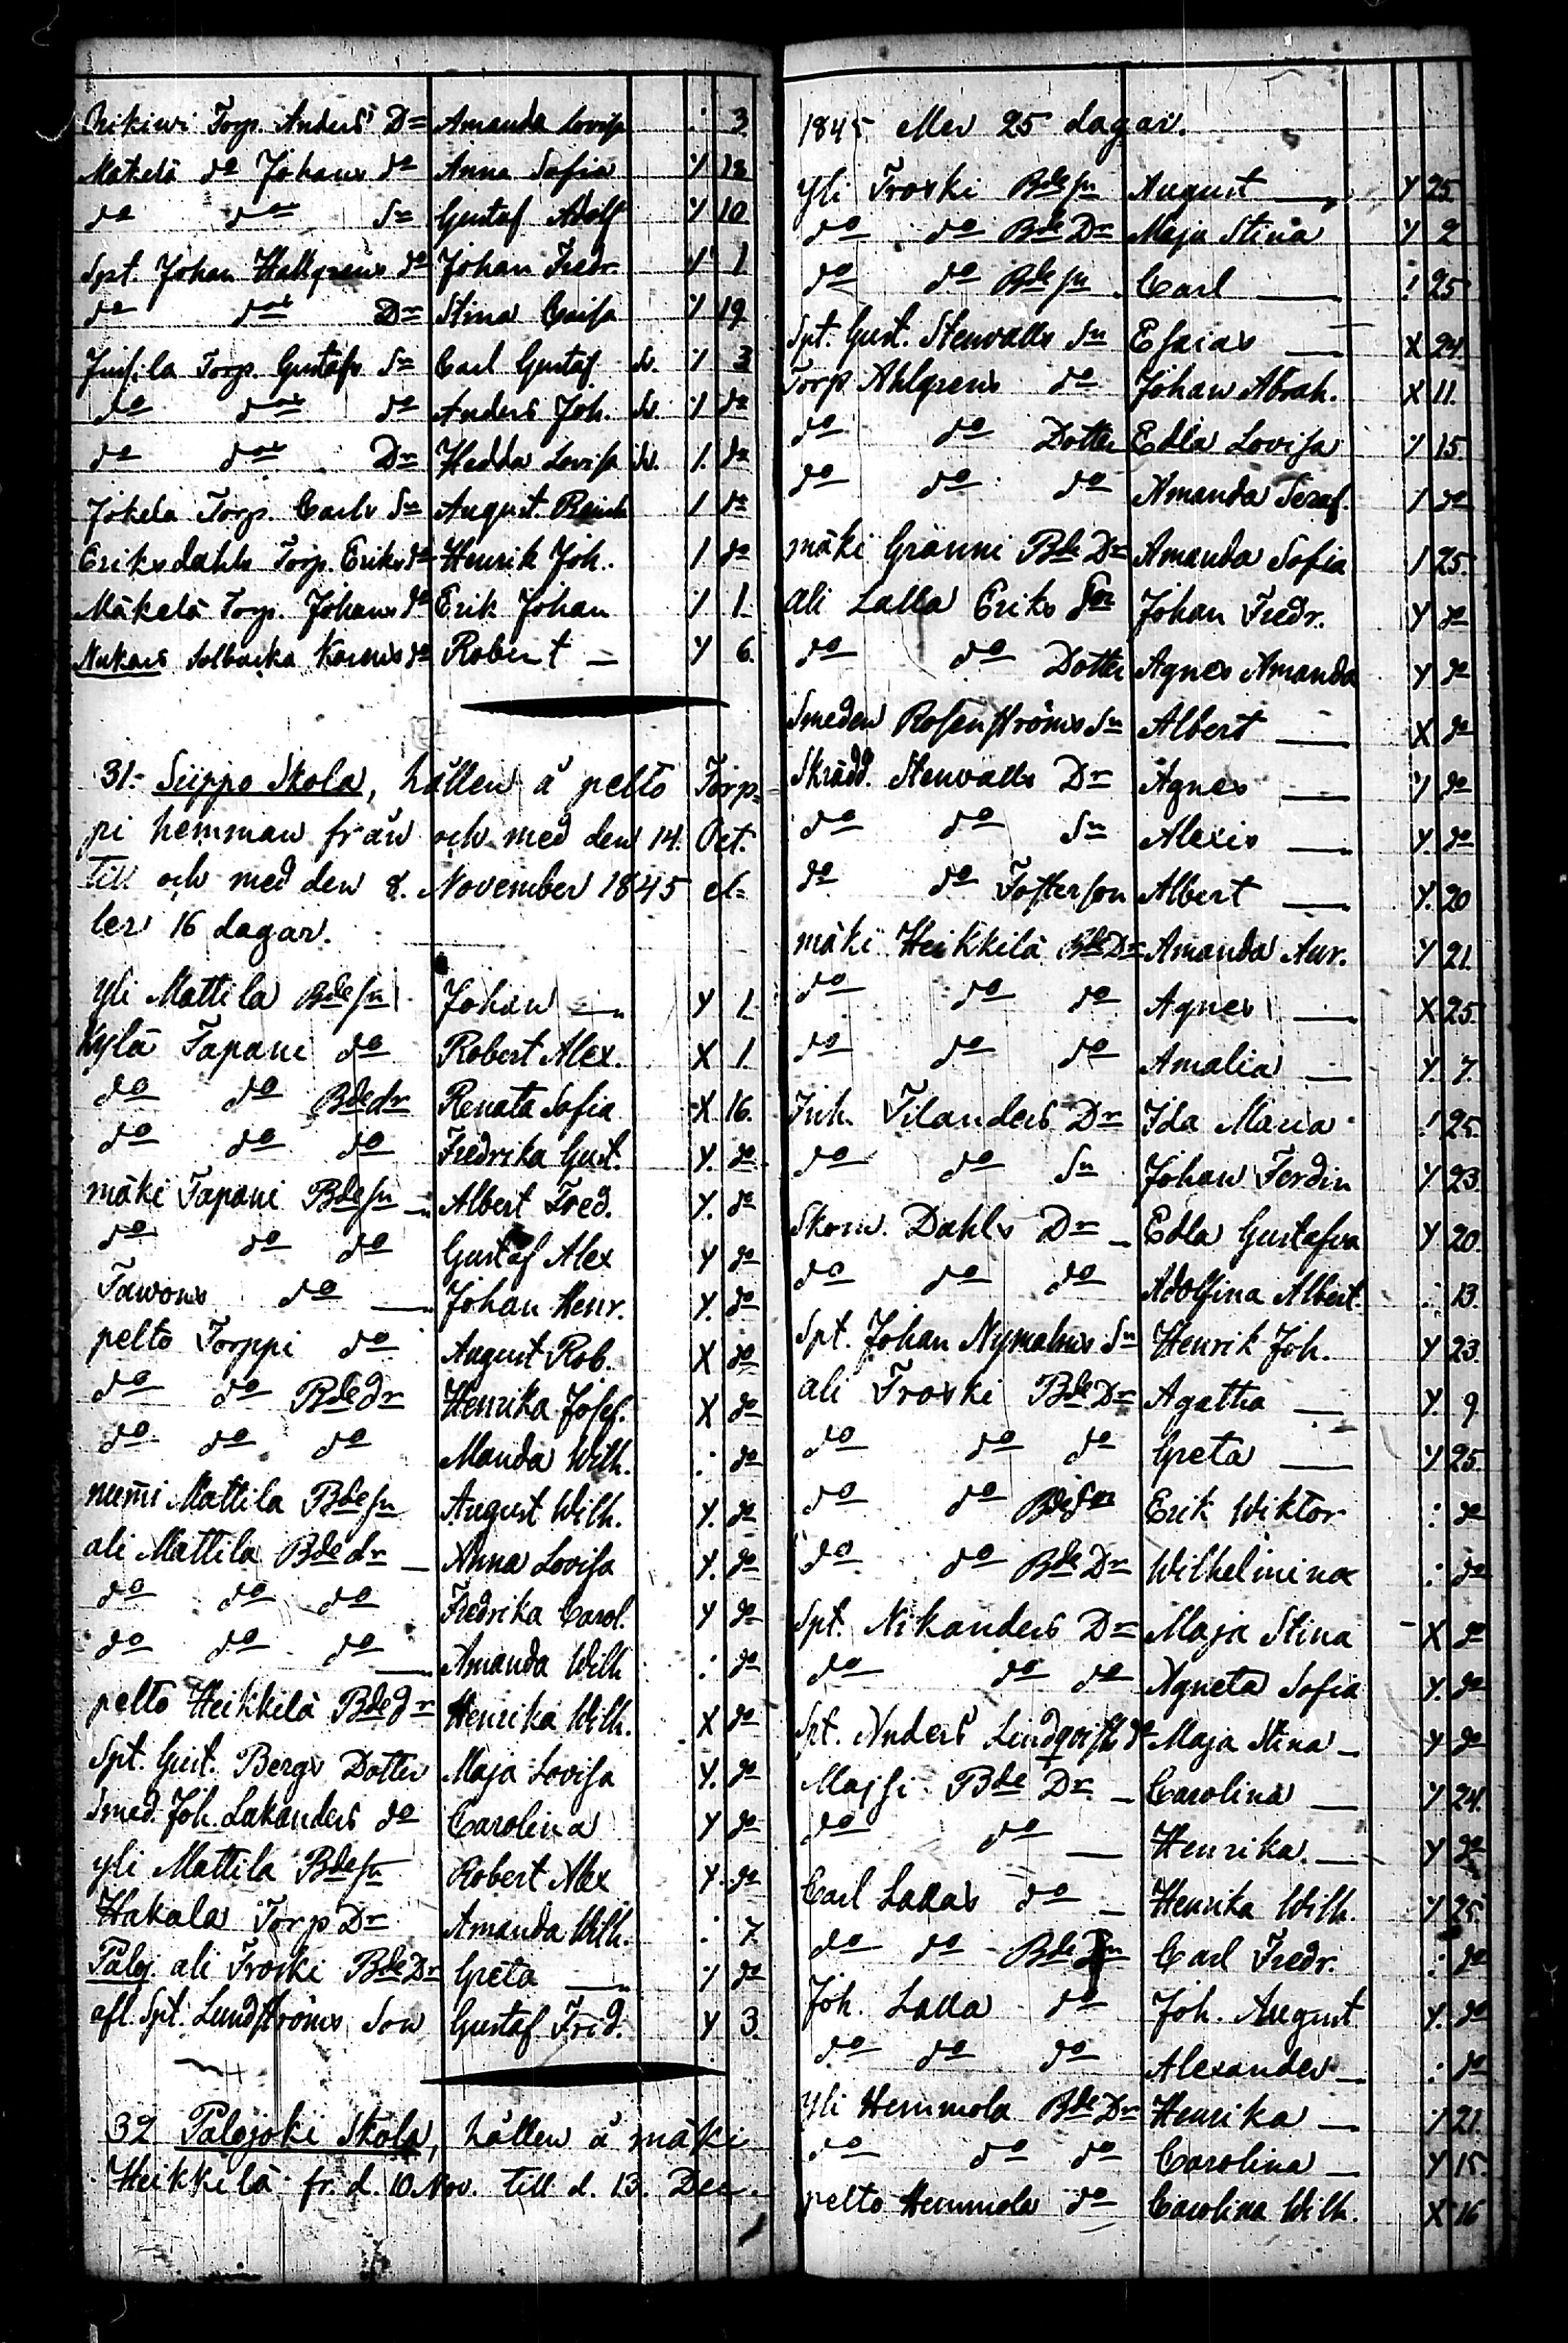 Torp. Anders Dr Amanda Lovisa : 3.
Mäkelä do Johans do Anna Sofia Y 12
do do Sn Gustaf Adolf Y 10
Spt. Johan Hallgrens do Johan Fredr. Y 1
do do Dr Stina Caisa Y 19
Torp. Gustafs Sn Carl Gustaf Y 3
do do do Anders Joh. Y do
do do Dr Hedda Lovisa Y. do
Jokela Torp. Carls Sn August Y do
Eriksdahls Torp. Eriks do Henrik Joh. Y do
Mäkelä Torp. Johans do Erik Johan Y 1.
Nukars do Robert — Y 6.
31. Siippo Skola, hållen å pelto Torp-
pi hemman från och med den 14. Oct.
till och med den 8. November 1845 el-
ler 16 dagar.
yli Mattila Bde sn Johan — Y 1.
Kylä Tapani do Robert Alex. X 1.
do do Bde dr Renata Sofia X 16.
do do do Fredrika Gust. Y. do
mäki Tapani Bde sn — Albert Fred. Y. do
do do do Gustaf Alex Y do
Tawons do — Johan Henr. Y. do
pelto Torppi do August Rob. X do
do do Bde dr Henrika Josef. X do
do do do Manda Wilh. : do
nummi Mattila Bde sn August Wilh. Y. do
ali Mattila Bde dr — Anna Lovisa Y. do
do do do Fredrika Carol. Y do
do do do — Amanda Wilh : do
pelto Heikkilä Bde dr Henrika Wilh. X do
Spt. Gust. Bergs Dotter Maja Lovisa Y. do
Smed. Joh. Lakanders do Carolina Y do
yli Mattila Bde sn Robert Alex Y. do
Hakala Torp Dr Amanda Wilh. : 7.
Paloj. ali Troski Bde Dr Greta — Y do
afl. Spt. Lundströms Son Gustaf Frid. Y 3.
32 Palojoki Skola, hållen å mäki
Heikkilä fr. d. 10 Nov. till d. 13. Dec.
1845 eller 25 dagar.
Yli Troski Bde sn August — Y 25
do do Bde Dr Maja Stina Y 2
do do Bde sn Carl — : 25
Spt. Gust. Stenvalls Sn Esaias — X 24.
Torp. Ahlgrens do Johan Abrah. X 11.
do do Dotter Edla Lovisa Y 15.
do do do Amanda Seraf. Y do
mäki Gränni Bde Dr Amanda Sofia Y 25.
ali Lalla Eriks Sn Johan Fredr. Y do
do do Dotter Agnes Amanda Y. do
Smeden Rosenströms Sn Albert — X do
Skrädd. Stenvalls Dr Agnes — Y do
do do Sn Alexis — Y. do
do do Fosterson Albert — Y. 20
mäki Heikkilä Bde Dr Amanda Aur. Y 21.
do do do Agnes — X 25.
do do do Amalia — Y. 7.
Inh. Tilanders Dr Ida Maria : 25.
do do Sn Johan Ferdin Y 23.
Skom. Dahls Dr — Edla Gustafva Y 20.
do do do Adolfina Albert. : 13.
Spt. Johan Nymalms Sn Henrik Joh. Y 23.
ali Troski Bde Dr Agatha — Y. 9.
do do do Greta — Y 25.
do do Bde sn Erik Wiktor : do
do do Bde Dr Wilhelmina : do
Spt. Nikanders Dr Maja Stina X do
do do do Agneta Sofia Y. do
Spt. Anders Lindqvists do Maja Stina — Y do
Majsi Bde Dr — Carolina — Y 24.
do do — Henrika. — Y do
Carl Lallas do — Henrika Wilh. Y 25.
do do Bde Sn Carl Fredr. : do
Joh. Lalla do Joh. August Y. do
do do do Alexander — : do
yli Hemmola Bde Dr Henrika — Y 21.
do do do Carolina — Y 15.
pelto Hemmola do Carolina Wilh. X 16